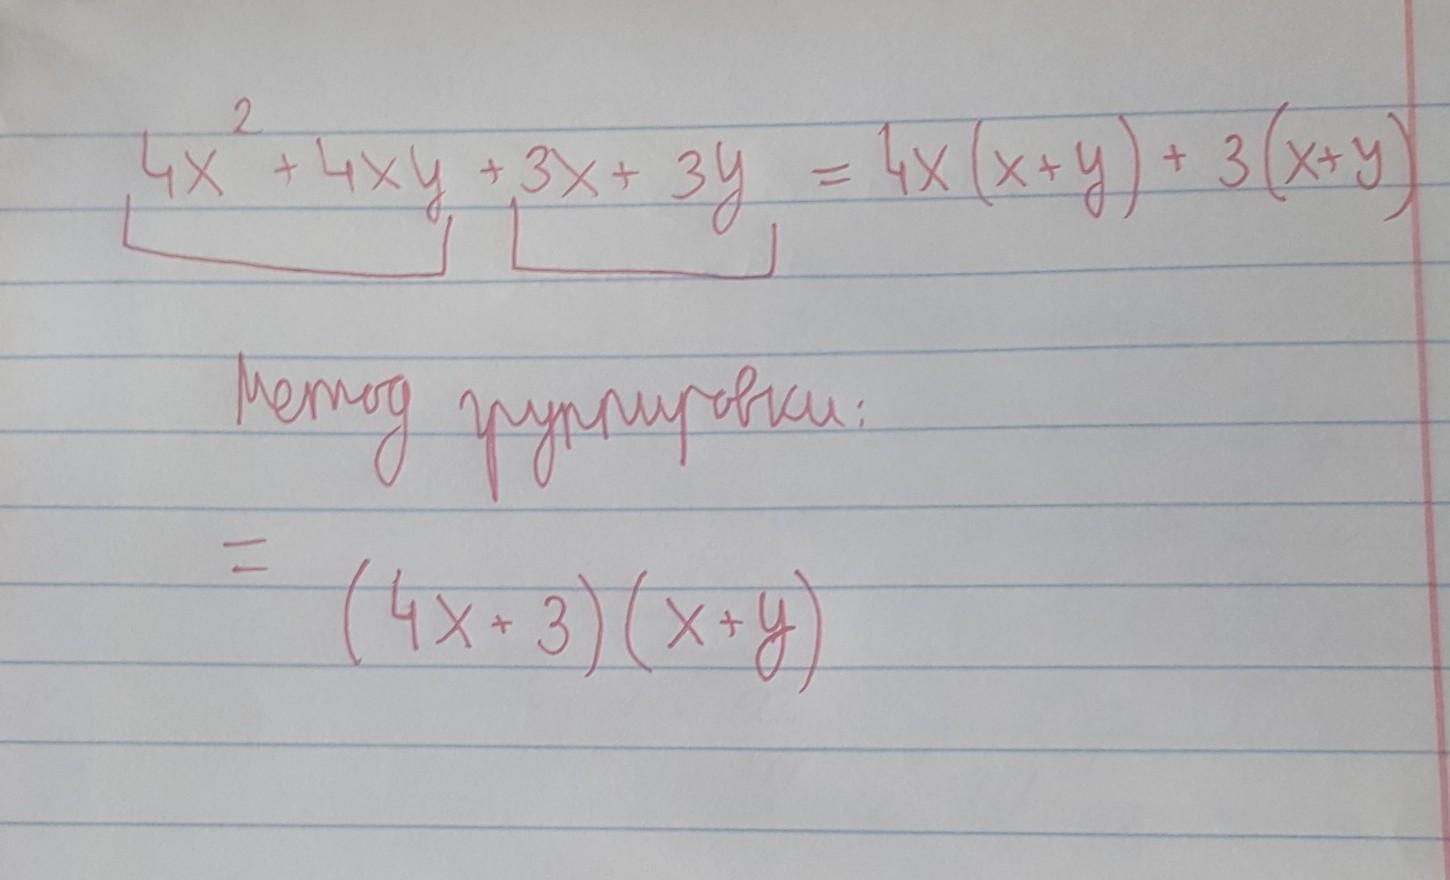 4x² + 4xy + 3x + 3y = 4x(x+y) + 3(x+y)
Метод группировки:
=
(4x + 3)(x+y)